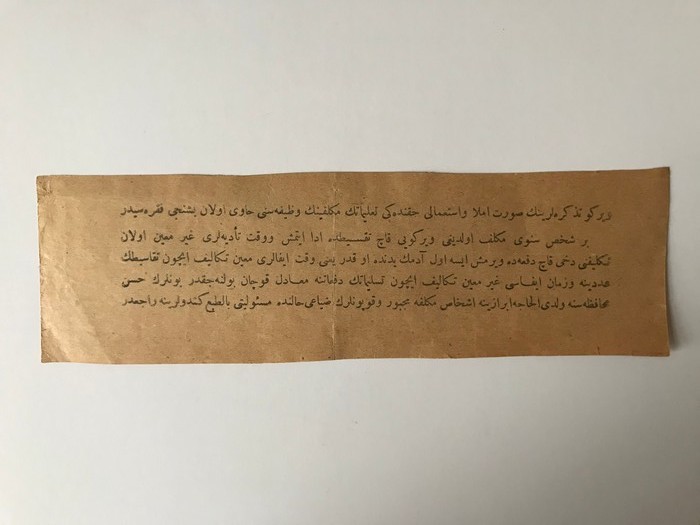 ویركو تذكره‌لرینك صورت املا واستعمالی حقنده‌كی تعلیماتك مكلفینك وظیفه‌سنی حاوی اولان بشنجی فقره‌سیدر
بر شخص سنوی مكلف اولدیغی ویركویی قاچ تقسیطده ادا ایتمش ووقت تأدیه‌لری غیر معین اولان
تكلیفی دخی قاچ دفعه‌ده ویرمش ایسه اول آدمك یدنده او قدر یعنی وقت ایفالری معین تكالیف ایچون تقاسیطك
عددینه وزمان ایفاسی غیر معین تكالیف ایچون تسلیماتك دفعاتنه معادل قوچان بولنه‌جقدر بونلرك حسن
محافظه‌سنه ولدی الحاجه ابرازینه اشخاص مكلفه مجبور وقوچونلرك ضیاعی حالنده مسئولیتی بالطبع كندولرینه راجعدر